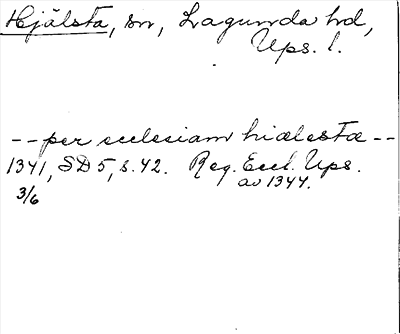 Hjälsta, sn, Lagunda hd,
Ups. l.
-- per ecclesiam hiælestæ --
1341, SD 5, s. 42. Reg. Eccl. Ups.
3/6 av 1344.